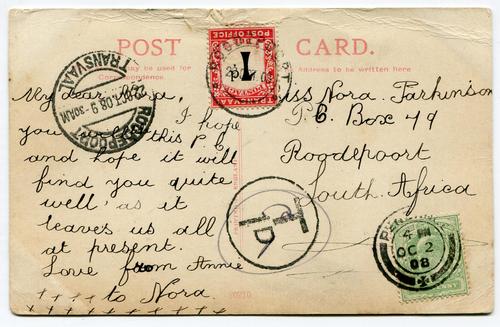 POST CARD.
may be used for
Correspondence.
Address to be written here
My dear
you I hope
this P.C
and hope it will
find you quite
well as it
leaves us all
at present.
Love from Annie
to Nora.
x x x x x x x x x x
Miss Nora Parkinson
P.C. Box 49
Roodepoort
South Africa
POST OFFICE
1
TRANSVAAL
TRANSVAAL
OCT.08.9
ROODEPOORT
T
1D
4 PM
OC 2
08